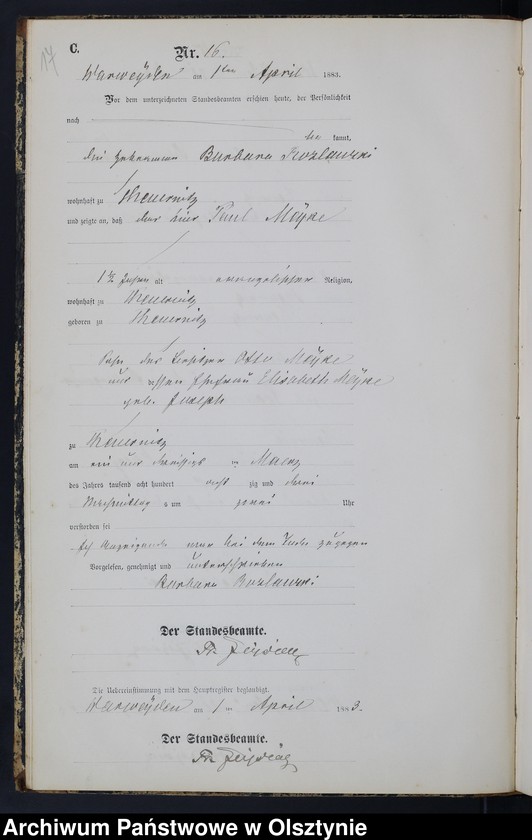 17
C.
Nr. 16.
Warweyden am 1ten April 1883.
Vor dem unterzeichneten Standesbeamten erschien heute, der Persönlichkeit
nach
be kannt,
die Hebamme Barbara Kozlawski
wohnhaft zu
und zeigte an, daß Paul Möyke
1½ Jahr alt evangelischer Religion,
wohnhaft zu
geboren zu
Sohn des Besitzer Otto Möyke
und dessen Ehefrau Elisabeth Möyke
geb. Joseph
zu
am ein und dreißigsten Maerz
des Jahres tausend acht hundert acht zig und drei
Nachmittag s um zwei Uhr
verstorben sei
bei dem Tode zugegen
Vorgelesen, genehmigt und unterschrieben
Barbara Kozlawski
Der Standesbeamte.
Die Uebereinstimmung mit dem Hauptregister beglaubigt.
Warweyden am 1 ten April 1883.
Der Standesbeamte.
Archiwum Państwowe w Olsztynie